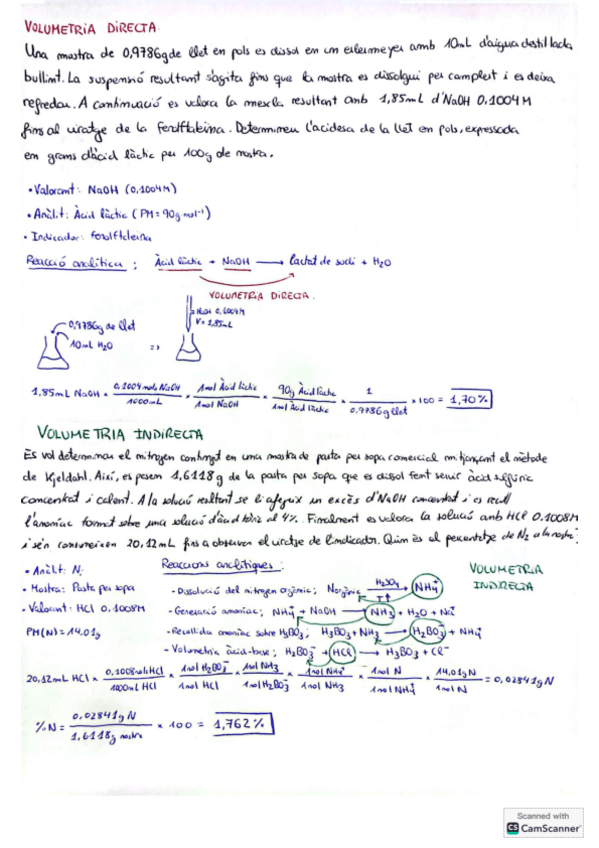 VOLUMETRIA DIRECTA
Una mostra de 0,9786g de llet en pols es dissol en un erlenmeyer amb 10mL d'aigua destil·lada
bullint. La suspensió resultant s'agita fins que la mostra es dissolgui per complert i es deixa
refredar. A continuació es valora la mescla resultant amb 1,85mL d'NaOH 0.1004M
fins al viratge de la fenolftaleina. Determineu l'acidesa de la llet en pols, expressada
em grams d'àcid làctic per 100g de mostra.
• Valorant: NaOH (0,1004M)
• Anàlit: Àcid làctic (PM = 90g mol⁻¹)
• Indicador: fenolftaleina
Reacció analítica: Àcid làctic + NaOH → lactat de sodi + H₂O
VOLUMETRIA DIRECTA.
0,9786g de llet
10mL H₂O
NaOH 0,1004M
V = 1,85mL
=>
1,85mL NaOH × 0,1004 mols NaOH / 1000mL × 1mol Àcid làctic / 1mol NaOH × 90g Àcid làctic / 1mol Àcid làctic × 1 / 0.9786g llet × 100 = 1,70%
VOLUMETRIA INDIRECTA
Es vol determinar el nitrogen contingut en una mostra de pasta per sopa comercial mitjançant el mètode
de Kjeldahl. Així, es pesen 1,6118g de la pasta per sopa que es dissol fent servir àcid sulfúric
concentrat i calent. A la solució resultant se li afegeix un excés d'NaOH concentrat i es recull
l'amoníac format sobre una solució d'àcid bòric al 4%. Finalment es valora la solució amb HCl 0.1008M
i se'n consumeixen 20,12mL fins a observar el viratge de l'indicador. Quin és el percentatge de N₂ a la mostra?
• Anàlit: N₂
• Mostra: Pasta per sopa
• Valorant: HCl 0.1008M
PM(N) = 14.01g
Reaccions analítiques:
- Dissolució del nitrogen orgànic; Norgànic H₂SO₄ → T↑ NH₄⁺
- Generació amoníac; NH₄⁺ + NaOH → NH₃ + H₂O + Na⁺
- Recollida amoníac sobre H₃BO₃; H₃BO₃ + NH₃ → H₂BO₃⁻ + NH₄⁺
- Volumetria àcid-base; H₂BO₃⁻ + HCl → H₃BO₃ + Cl⁻
VOLUMETRIA
INDIRECTA
20,12mL HCl × 0,1008mol HCl / 1000mL HCl × 1mol H₂BO₃⁻ / 1mol HCl × 1mol NH₃ / 1mol H₂BO₃⁻ × 1mol NH₄⁺ / 1mol NH₃ × 1mol N / 1mol NH₄⁺ × 14,01g N / 1mol N = 0,02841g N
%N = 0,02841g N / 1,6118g mostra × 100 = 1,762%
Scanned with
CS CamScanner